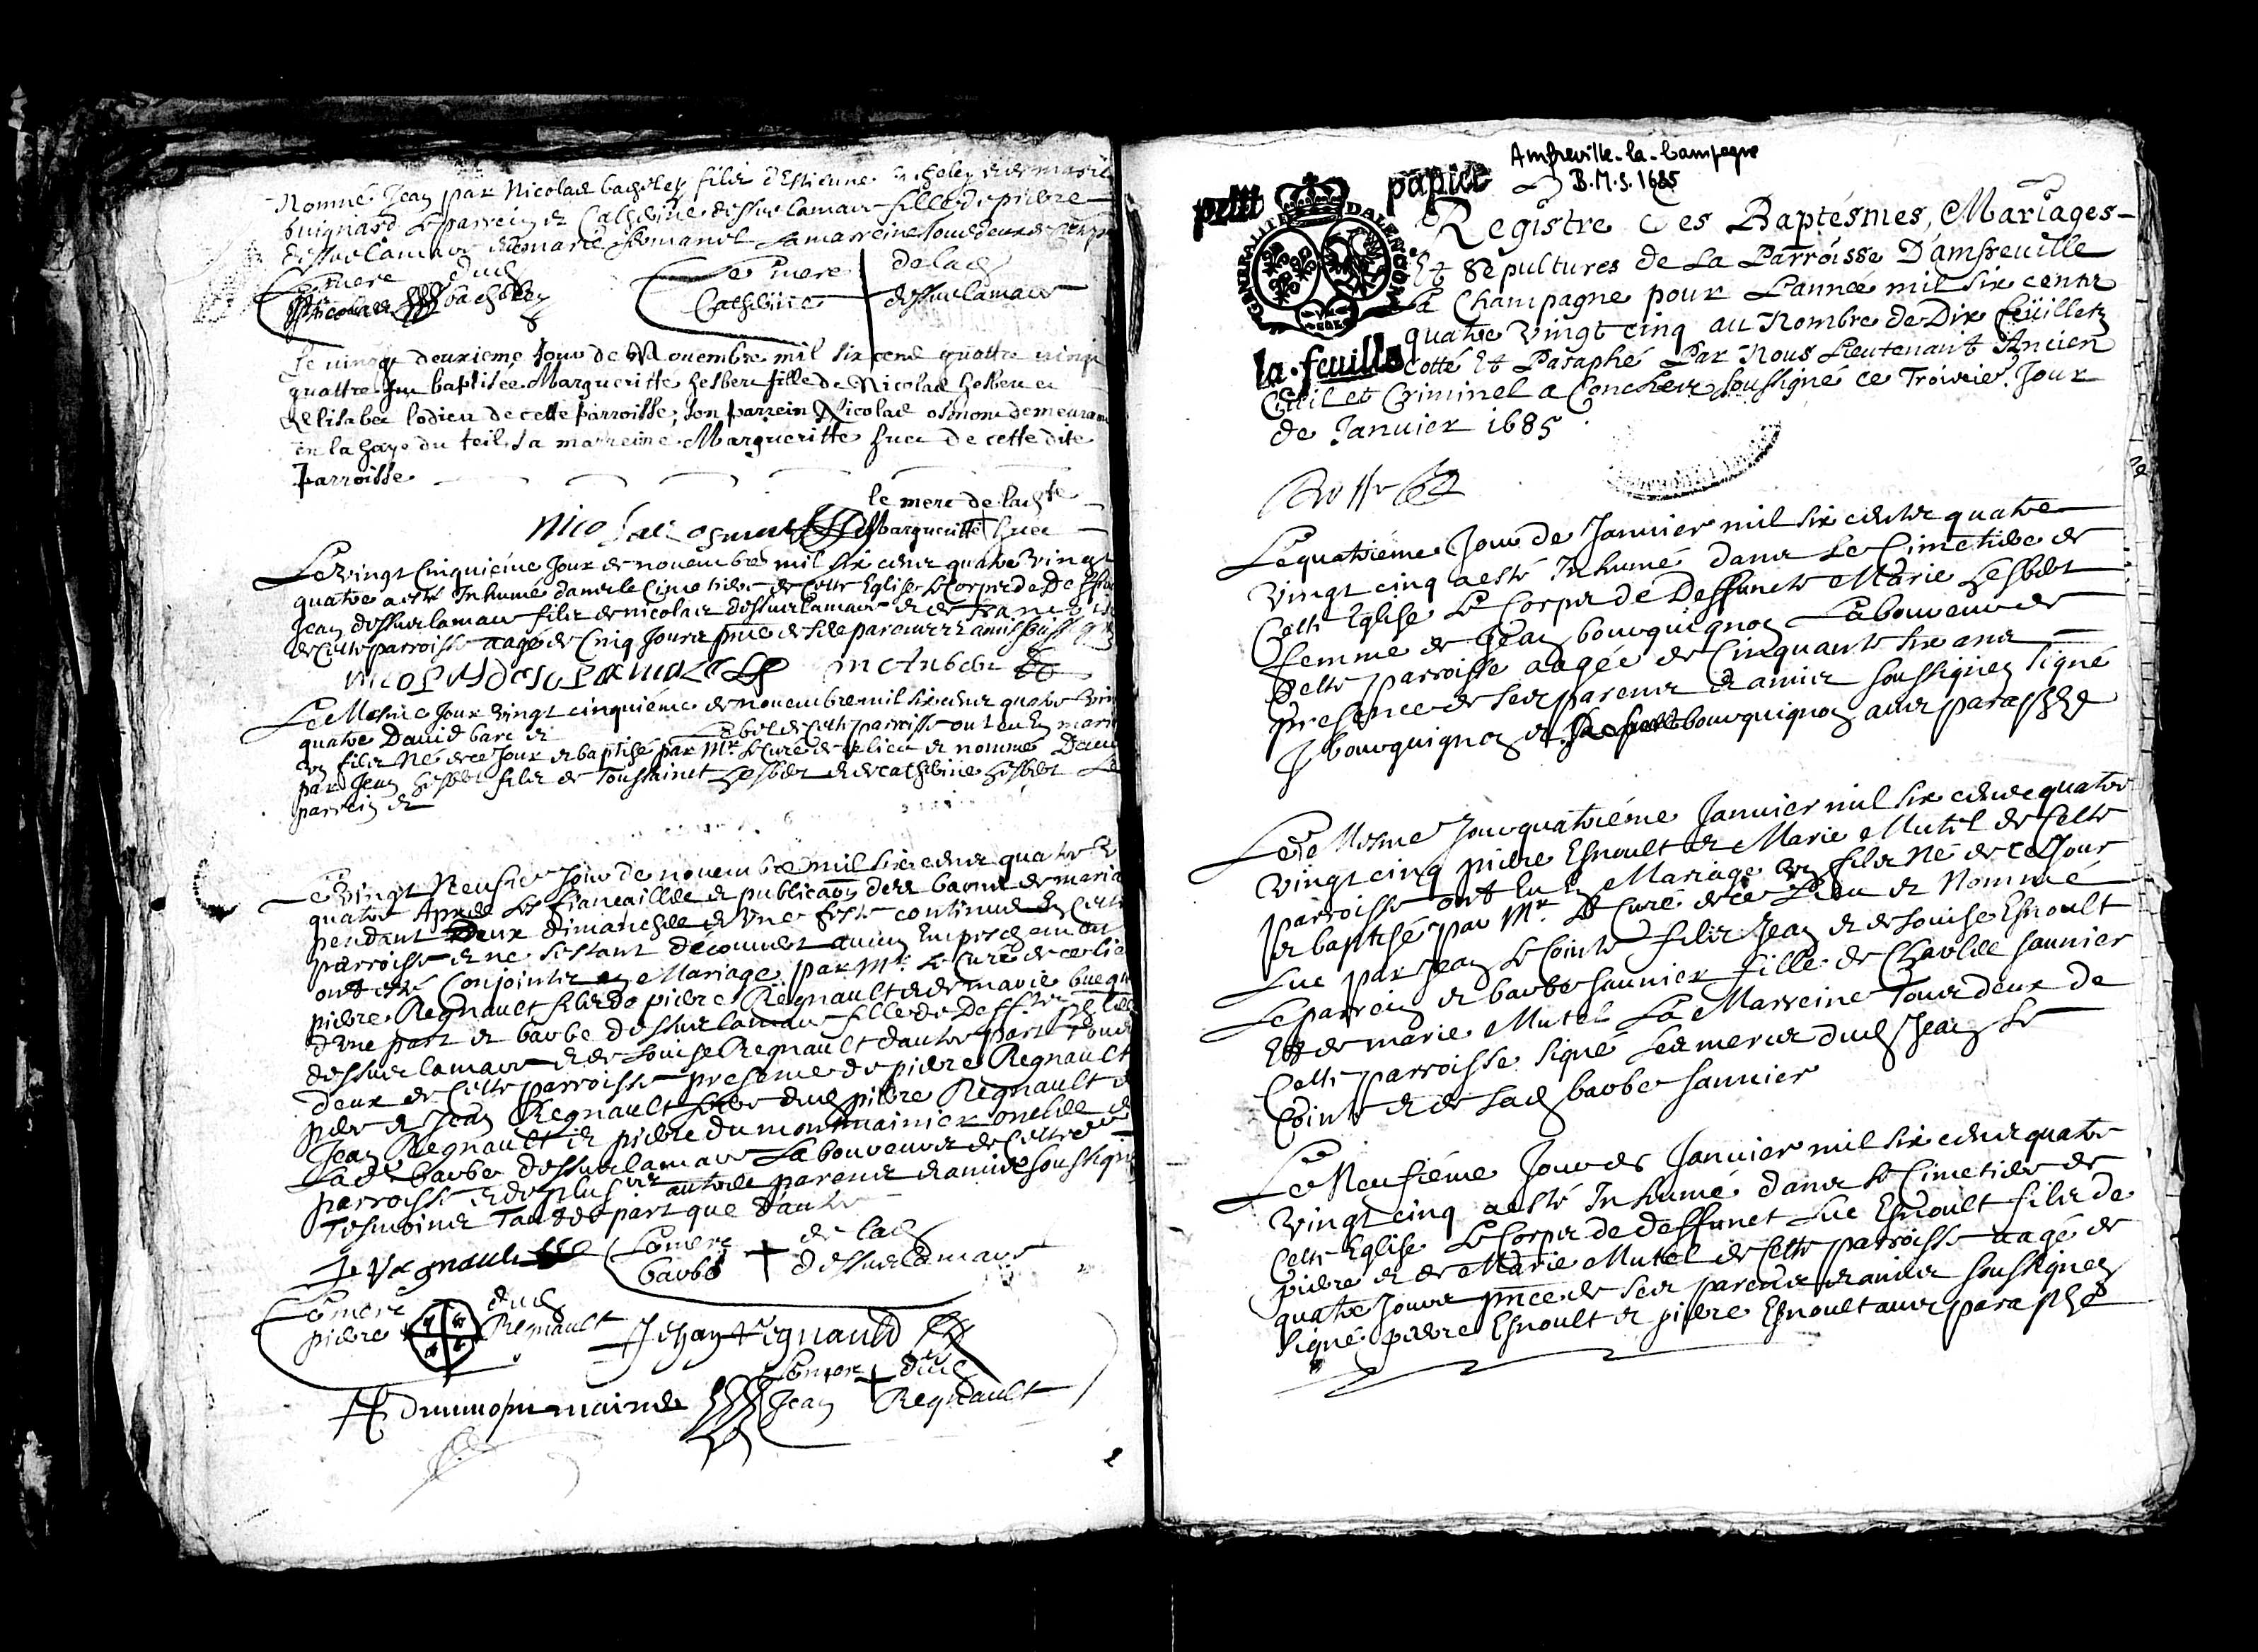 Nommé Jean par Nicolas bacheley filz d'Estienne bacheley et de marie
buignard Le parrein et Catherine dessuslamare fille de pierre
dessuslamare et de marie Le marreine tous deux de cette
Le merc dud
Nicolas bacheley
Le merc de lad
Catherine dessuslamare
Le vingt deuxieme Jour de Nouembre mil six cens quattre vingt
quattre fut baptisée Margueritte hesbert fille de Nicolas hesbert et
Elisabet lodieu de cette parroisse, son parrein Nicolas osmont demeurant
en la haye du teil, sa marreine Margueritte huet de cette dite
Parroisse
le merc de ladte
Nicolas osmont Margueritte huet
Le vingt Cinquiéme Jour de nouembre mil six cens quatre vingt
quatre a esté Inhumé dans le Cimetiere de Cette Eglise Le Corps de Deffunct
Jean dessuslamare filz de nicolas dessuslamare et de
de Cette parroisse aagé de Cinq Jours pnce de ses parens et amis soussignez
nicolas desuslamare
Le Mesme Jour vingt cinquiéme de nouembre mil six cens quatre vingt
quatre Dauid bare et hebert de Cette parroisse ont eu en mariage
un filz Né de ce Jour et baptisé par Mr. Le Curé de ce lieu et nommé Dauid
par Jean hesbert filz de Toussainct hesbert et de catherine hesbert Le
parrein et
Le vingt Neufie Jour de nouembre mil six cens quatre vingt
quatre Apres Les fiancailles et publicaon des bans de mariage
pendant Deux dimanches et Vne feste continue En Cette
parroisse et ne s'estant découuert aucun Empeschement
ont esté Conjoints en Mariage par Mr. Le Curé de ce lieu
pierre Regnault filz de pierre Regnault et de marie
d'une part et barbe dessuslamare fille de Deffunct
dessuslamare et de Louise Regnault d'autre part Tous
deux de Cette parroisse presence de pierre Regnault
pere et Jean Regnault frere dud pierre Regnault
Jean Regnault et pierre dumontmainier oncles de
Lad barbe dessuslamare Laboureurs de Cette dte
parroisse et de plusrs autres parens et amis soussignez
Tesmoins Tant de part que d'autre
P Regnault
Le merc de lad
barbe dessuslamare
Le merc dud
pierre Regnault
Jehan regnauld
Le merc dud
Jean Regnault
P dumonmainie
Amfreville-la-Campagne
B.M.S. 1685
petit papier
GENERALITE DALENCON
la feuille
Registre Des Baptésmes, Mariages
Et Sepultures de La Parroisse D'amfreuille
La Champagne pour L'année mil six cents
quatre vingt cinq au Nombre de Dix feüillets
cotté Et Paraphé Par Nous Lieutenant Ancien
Ciuil et Criminel a Conches soussigné ce Troisie. Jour
de Januier 1685
Le quatriéme Jour de Januier mil six cents quatre
vingt cinq a esté Inhumé dans Le Cimetiere de
Cette Eglise Le Corps de Deffuncte Marie hesbert
femme de Jean bourguignon Laboureur de
Cette parroisse aagée de Cinquante six ans
presence de ses parens et amis soussignez signé
J bourguignon et bourguignon auec paraphe
Le Mesme Jour quatriéme Januier mil six cens quatre
vingt cinq pierre Esnoult et Marie Mutel de Cette
parroisse ont Eu En Mariage un filz Né de ce Jour
et baptisé par Mr. Le Curé de ce Lieu et Nommé
Luc par Jean Le Cointe filz Jean et de Louise Esnoult
Le parrein et barbe saunier fille de Charles saunier
Et de marie Mutel La Marreine Tous deux de
Cette parroisse signé Les mercs dud Jean Le
Cointe et de Lad barbe saunier
Le Neufiéme Jour de Januier mil six cens quatre
vingt cinq a esté Inhumé dans Le Cimetiere de
Cette Eglise Le Corps de deffunct Luc Esnoult filz de
pierre et de Marie Mutel de Cette parroisse aagé de
quatre Jours pnce de ses parens et amis soussignez
signé pierre Esnoult et pierre Esnoult auec paraphe